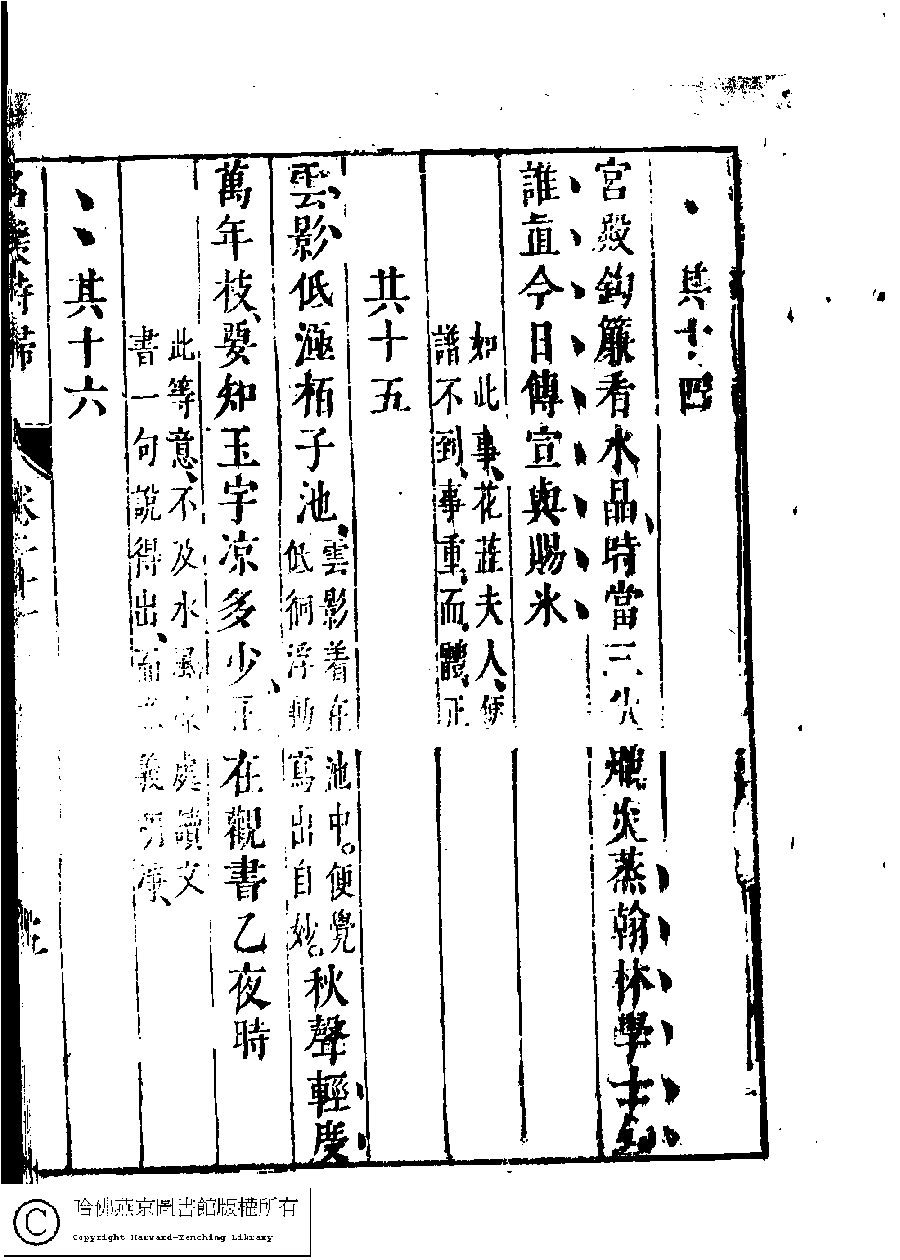 其十四
宮殿鈎簾看水晶時當三伏爞炎蒸翰林學士
誰直今日傳宣與賜氷
如此事花蕋夫人便
譜不到事重而體正
其十五
雲影低涵栢子池雲影着在池中便覺低徊浮動寫出自妙秋聲輕度
萬年枝要知玉宇凉多少正在觀書乙夜時
此等意不及水風凉處讀文
書一句說得出而義明凈
其十六
名媛詩歸
卷二十
哈佛燕京圖書館版權所有
Copyright Harvard-Yenching Library